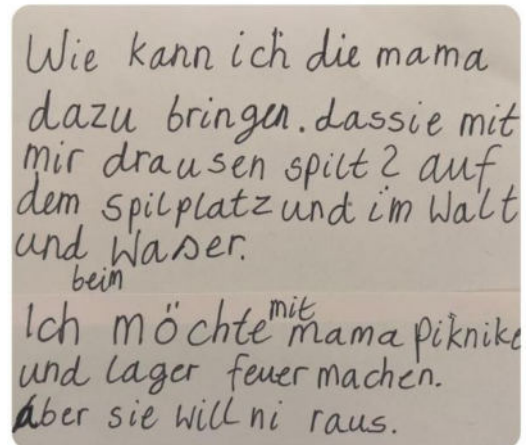 Wie kann ich die mama
dazu bringen. dassie mit
mir drausen spilt? auf
dem spilplatz und im Walt
und Waser.
beim
Ich möchte mit mama piknike
und lager feuer machen.
Aber sie will ni raus.